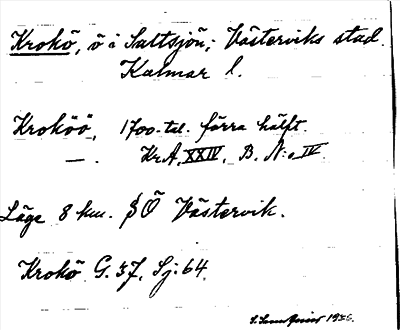 Krokö, ö i Saltsjön; Västerviks stad.
Kalmar l.
Kroköö, 1700-tal. förra hälft.
— . Kr.A. XXIV, B. N:o IV.
Läge 8 km. SÖ Västervik.
Krokö G. 37, Sj: 64.
1936.